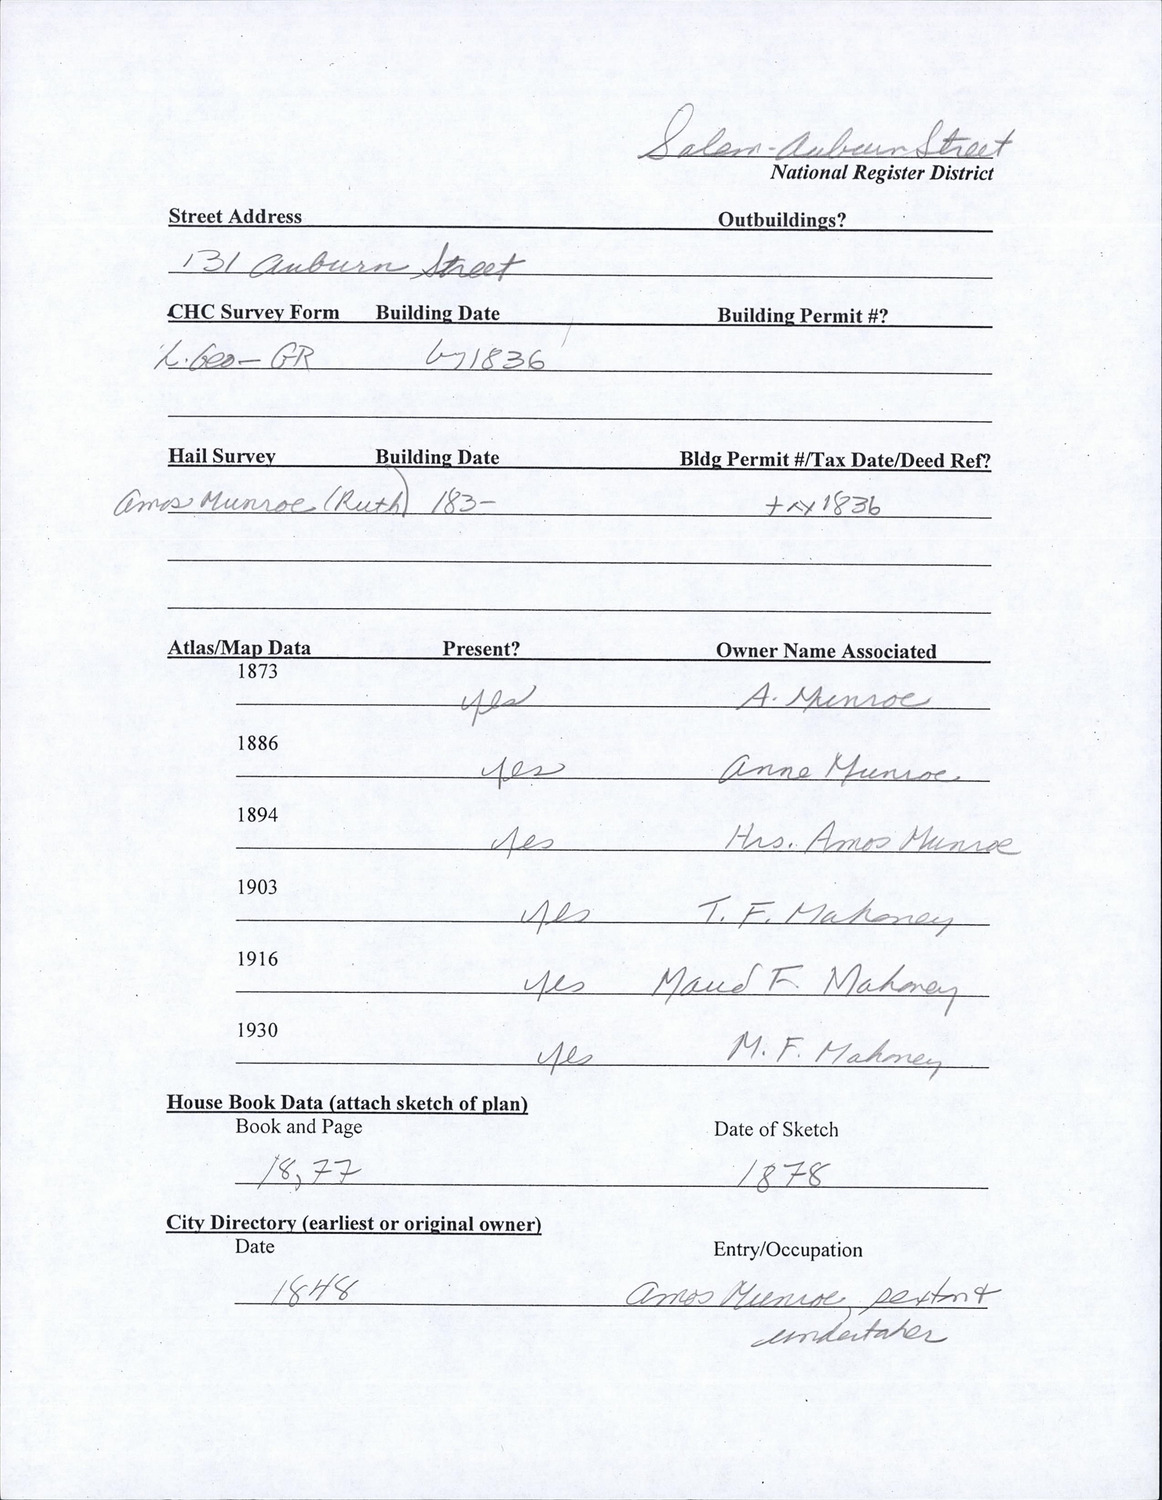 Salem-Auburn Street
National Register District
Street Address Outbuildings?
131 Auburn Street
CHC Survey Form Building Date Building Permit #?
L. Geo - GR by 1836
Hail Survey Building Date Bldg Permit #/Tax Date/Deed Ref?
Amos Munroe (Ruth) 183- tax 1836
Atlas/Map Data Present? Owner Name Associated
1873
yes A. Munroe
1886
yes Anne Munroe
1894
yes Mrs. Amos Munroe
1903
yes T. F. Mahoney
1916
yes Maud F. Mahoney
1930
yes M. F. Mahoney
House Book Data (attach sketch of plan)
Book and Page Date of Sketch
18, 77 1878
City Directory (earliest or original owner)
Date Entry/Occupation
1848 Amos Munroe, sexton &
undertaker